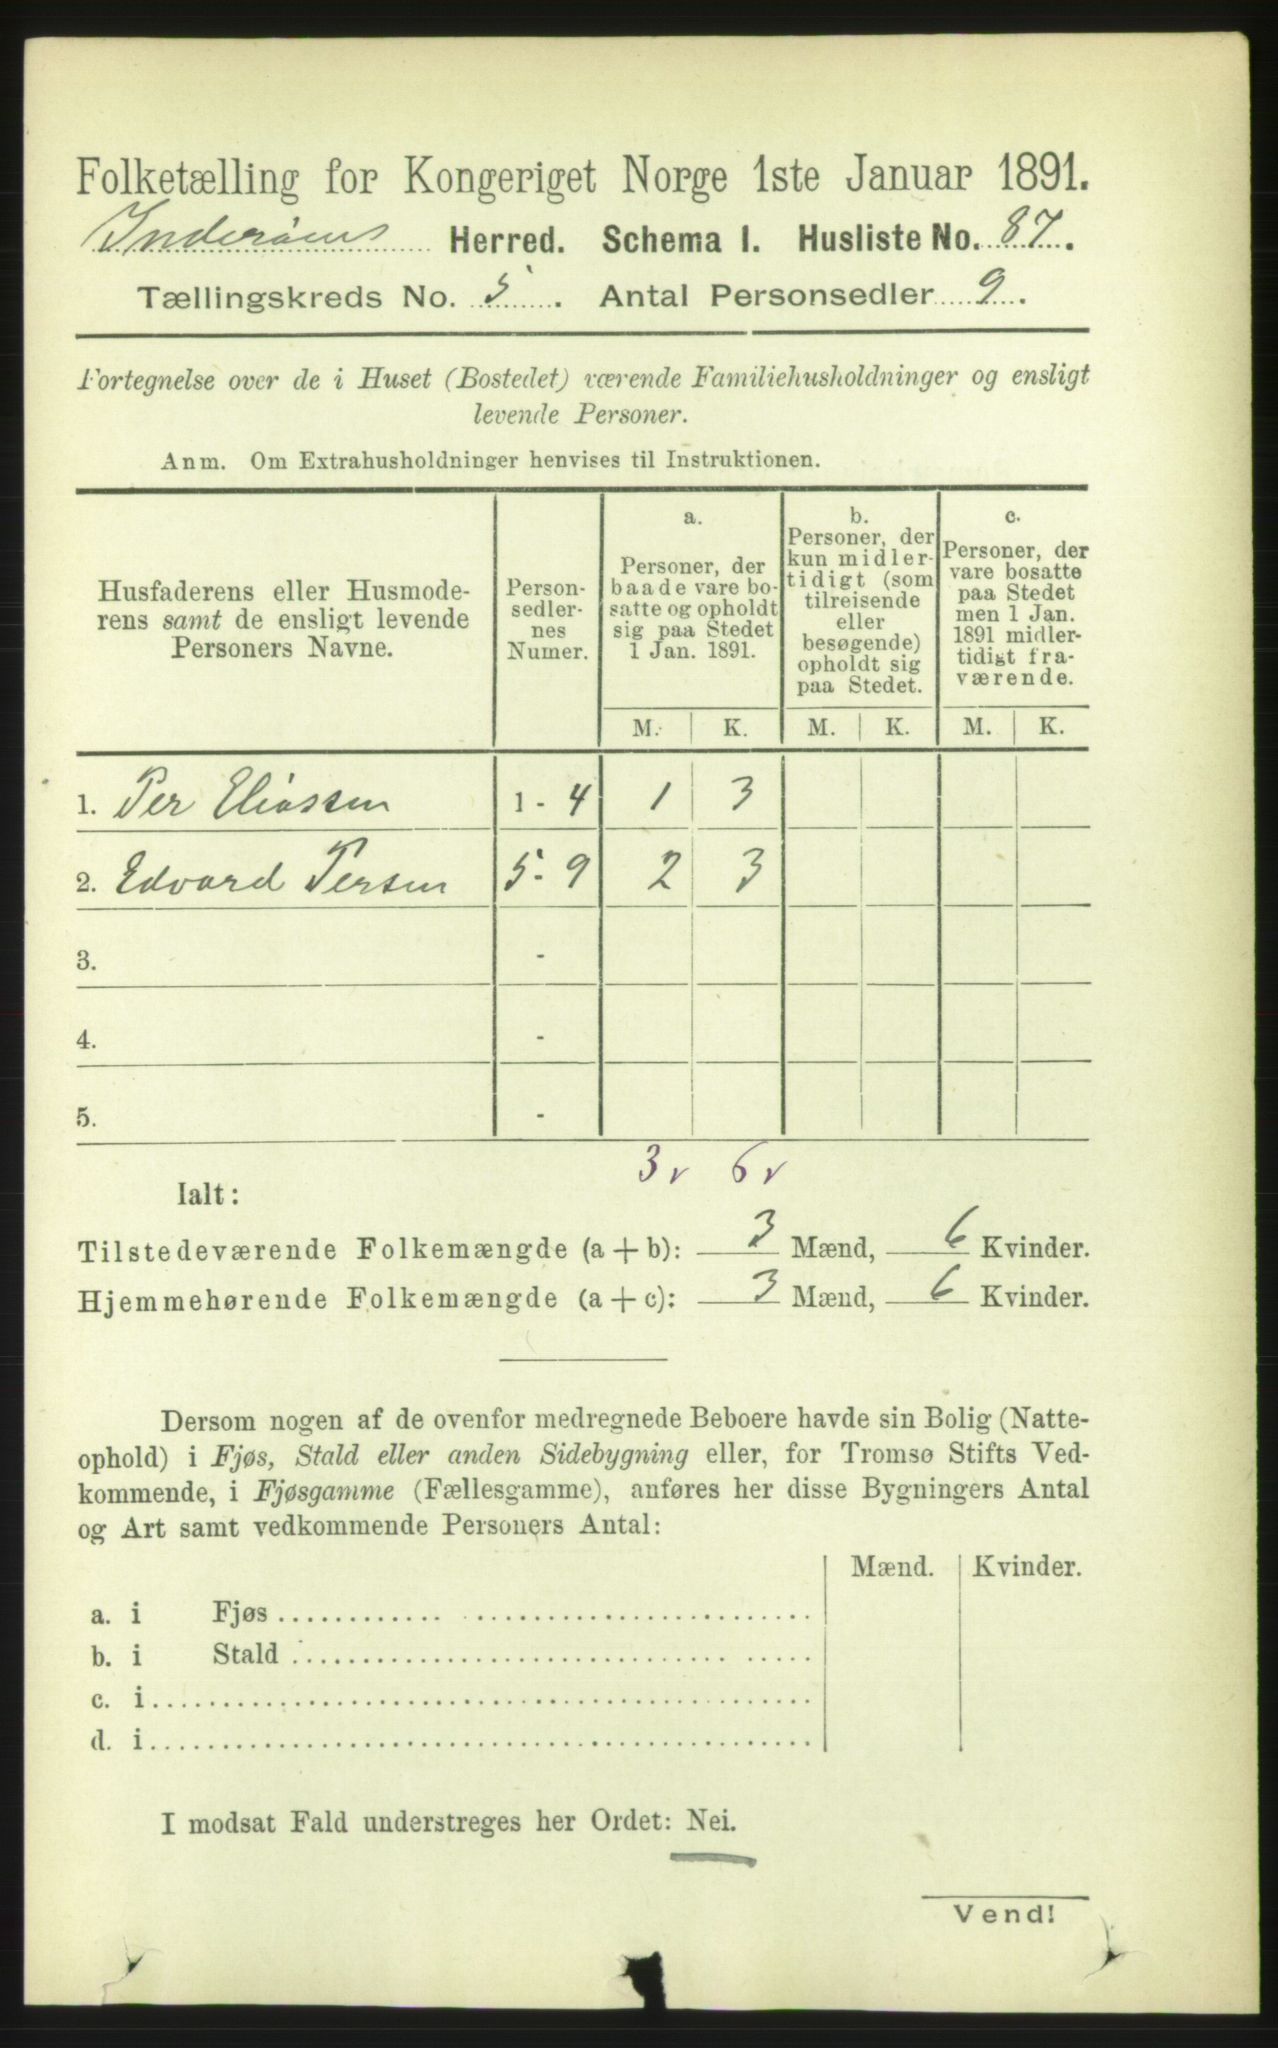 Folketælling for Kongeriget Norge 1ste Januar 1891.
Inderøens Herred. Schema I. Husliste No. 87.
Tællingskreds No. 5. Antal Personsedler 9.
Fortegnelse over de i Huset (Bostedet) værende Familiehusholdninger og ensligt
levende Personer.
Anm. Om Extrahusholdninger henvises til Instruktionen.
Husfaderens eller Husmode-
rens samt de ensligt levende
Personers Navne.
Person-
sedler-
nes
Numer.
a.
Personer, der
baade vare bo-
satte og opholdt
sig paa Stedet
1 Jan. 1891.
b.
Personer, der
kun midler-
tidigt (som
tilreisende
eller
besøgende)
opholdt sig
paa Stedet.
c.
Personer, der
vare bosatte
paa Stedet
men 1 Jan.
1891 midler-
tidigt fra-
værende.
M. K. M. K. M. K.
1. Per Eliassen 1 - 4 1 3
2. Edvard Persen 5 - 9 2 3
3. -
4. -
5. -
3 v 6 v
Ialt:
Tilstedeværende Folkemængde (a + b): 3 Mænd, 6 Kvinder.
Hjemmehørende Folkemængde (a + c): 3 Mænd, 6 Kvinder.
Dersom nogen af de ovenfor medregnede Beboere havde sin Bolig (Natte-
ophold) i Fjøs, Stald eller anden Sidebygning eller, for Tromsø Stifts Ved-
kommende, i Fjøsgamme (Fællesgamme), anføres her disse Bygningers Antal
og Art samt vedkommende Personers Antal:
Mænd. Kvinder.
a. i Fjøs
b. i Stald
c. i
d. i
I modsat Fald understreges her Ordet: Nei.
Vend!